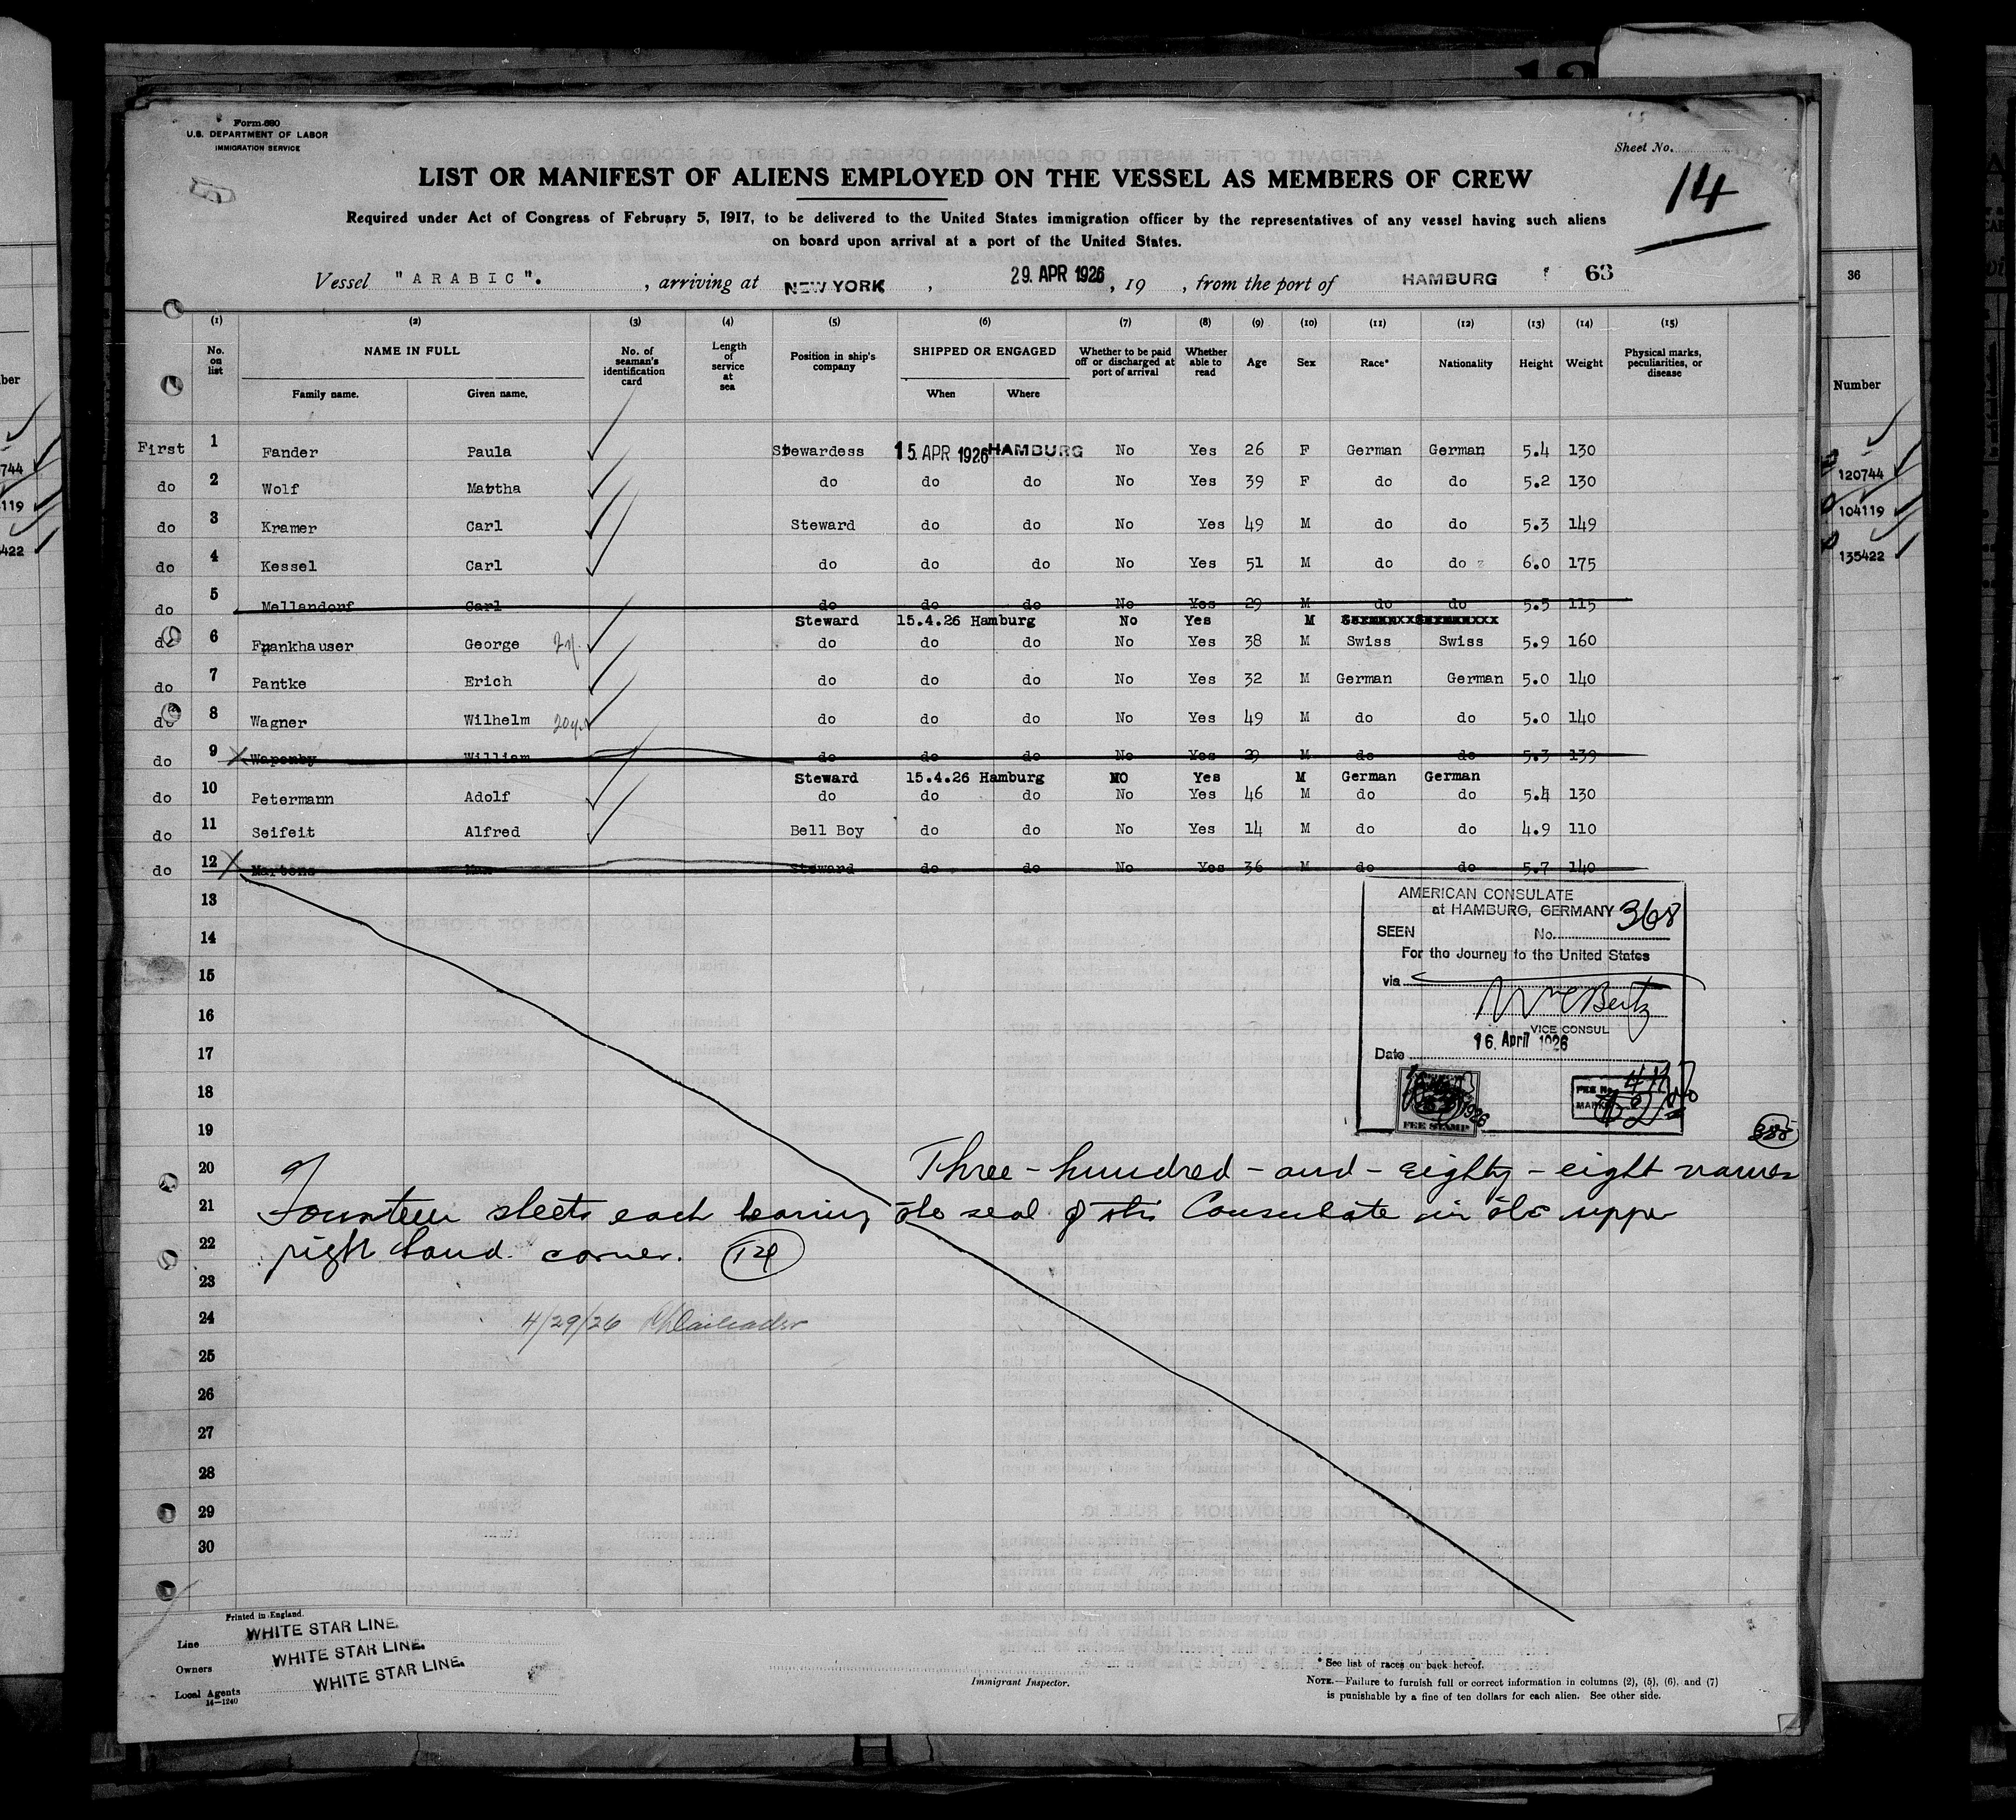 Form 680
U.S. DEPARTMENT OF LABOR
IMMIGRATION SERVICE
Sheet No.
14
LIST OR MANIFEST OF ALIENS EMPLOYED ON THE VESSEL AS MEMBERS OF CREW
Required under Act of Congress of February 5, 1917, to be delivered to the United States immigration officer by the representatives of any vessel having such aliens
on board upon arrival at a port of the United States.
Vessel "ARABIC". , arriving at NEW YORK , 29. APR 1926 , 19 , from the port of HAMBURG 63
(1) (2) (3) (4) (5) (6) (7) (8) (9) (10) (11) (12) (13) (14) (15)
No. on list NAME IN FULL Family name. Given name. No. of seaman's identification card Length of service at sea Position in ship's company SHIPPED OR ENGAGED When Where Whether to be paid off or discharged at port of arrival Whether able to read Age Sex Race* Nationality Height Weight Physical marks, peculiarities, or disease
First 1 Fander Paula Stewardess 15. APR 1926 HAMBURG No Yes 26 F German German 5.4 130
do 2 Wolf Martha do do do No Yes 39 F do do 5.2 130
do 3 Kramer Carl Steward do do No Yes 49 M do do 5.3 149
do 4 Kessel Carl do do do No Yes 51 M do do 6.0 175
do 5 Mellandorf Carl do do do No Yes 29 M do do 5.5 115
Steward 15.4.26 Hamburg No Yes M
do 6 Frankhauser George do do do No Yes 38 M Swiss Swiss 5.9 160
do 7 Pantke Erich do do do No Yes 32 M German German 5.0 140
do 8 Wagner Wilhelm 20y. do do do No Yes 49 M do do 5.0 140
do 9 X Wapenby William do do do No Yes 29 M do do 5.3 139
Steward 15.4.26 Hamburg NO Yes M German German
do 10 Petermann Adolf do do do No Yes 46 M do do 5.4 130
do 11 Seifeit Alfred Bell Boy do do No Yes 14 M do do 4.9 110
do 12 X Martens Max Steward do do No Yes 36 M do do 5.7 140
13
14
15
16
17
18
19
20
21
22
23
24
25
26
27
28
29
30
AMERICAN CONSULATE
at HAMBURG, GERMANY
SEEN No. 368
For the Journey to the United States
via
VICE CONSUL
Date 16. April 1926
FEE STAMP
FEE No.
MARKS
388
Three-hundred-and-eighty-eight names
Fourteen sheets each bearing the seal of this Consulate in the upper
right hand corner. 14
4/29/26
Printed in England.
Line WHITE STAR LINE.
Owners WHITE STAR LINE.
Local Agents WHITE STAR LINE.
14—1240
Immigrant Inspector.
* See list of races on back hereof.
NOTE.—Failure to furnish full or correct information in columns (2), (5), (6), and (7)
is punishable by a fine of ten dollars for each alien. See other side.
36
Number
120744
104119
135422
ber
744
119
422